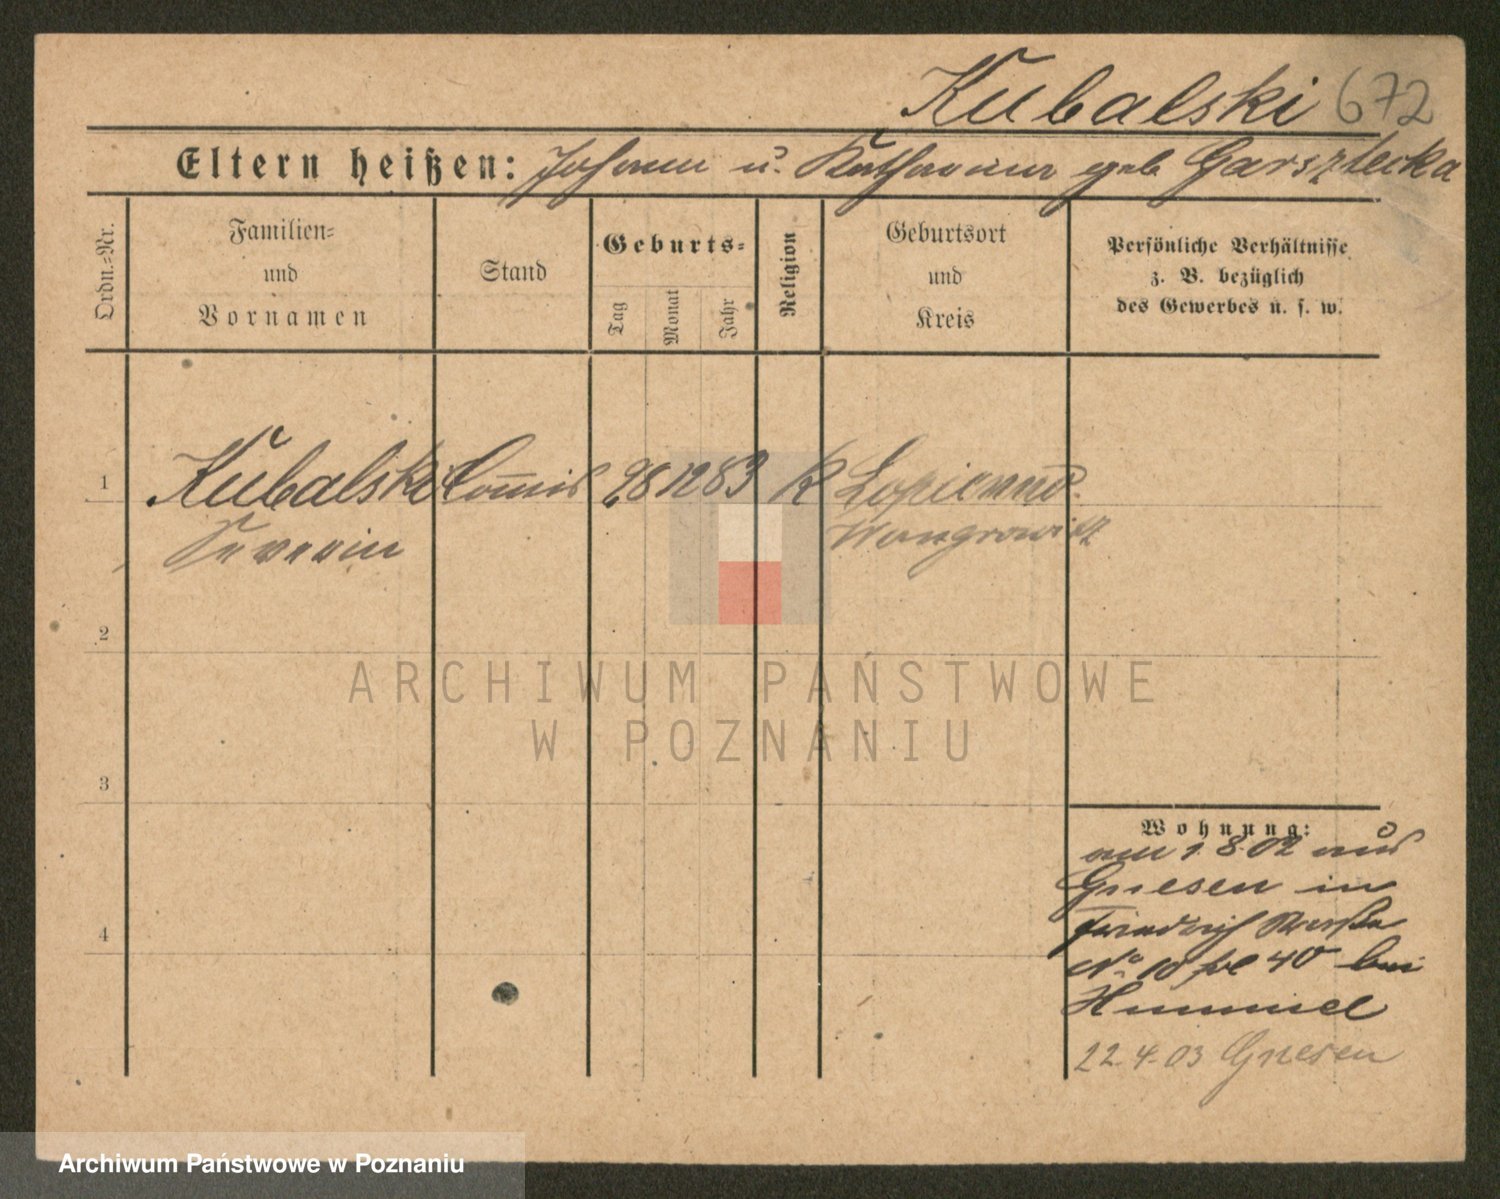 Kubalski 672
Eltern heißen: Johann u. Katharina geb. Garsztecka
Ordn.=Nr.
Familien=
und
Vornamen
Stand
Geburts=
Tag
Monat
Jahr
Religion
Geburtsort
und
Kreis
Persönliche Verhältnisse
z. B. bezüglich
des Gewerbes u. s. w.
1 Kubalski Commis 28 12 83 K Lopienno
Severin Wongrowitz
2
3
4
Wohnung:
am 1.8.02 aus
Gnesen in
Friedrich Straße
No 10 40 bei
Hummel
22.4.03 Gnesen
ARCHIWUM PAŃSTWOWE
W POZNANIU
Archiwum Państwowe w Poznaniu